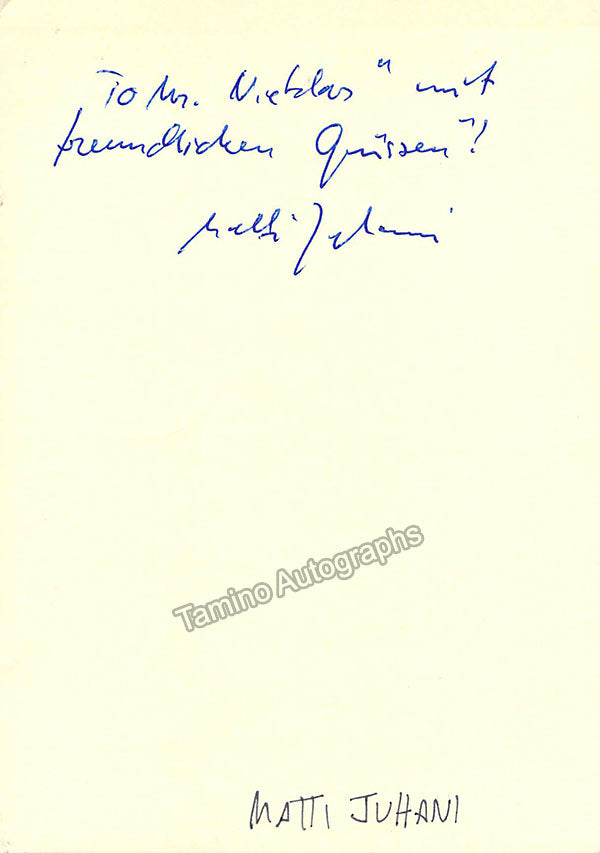 To Mr. Nicklas "mit
freundlichen Grüssen"!
Matti Juhani
Tamino Autographs
MATTI JUHANI